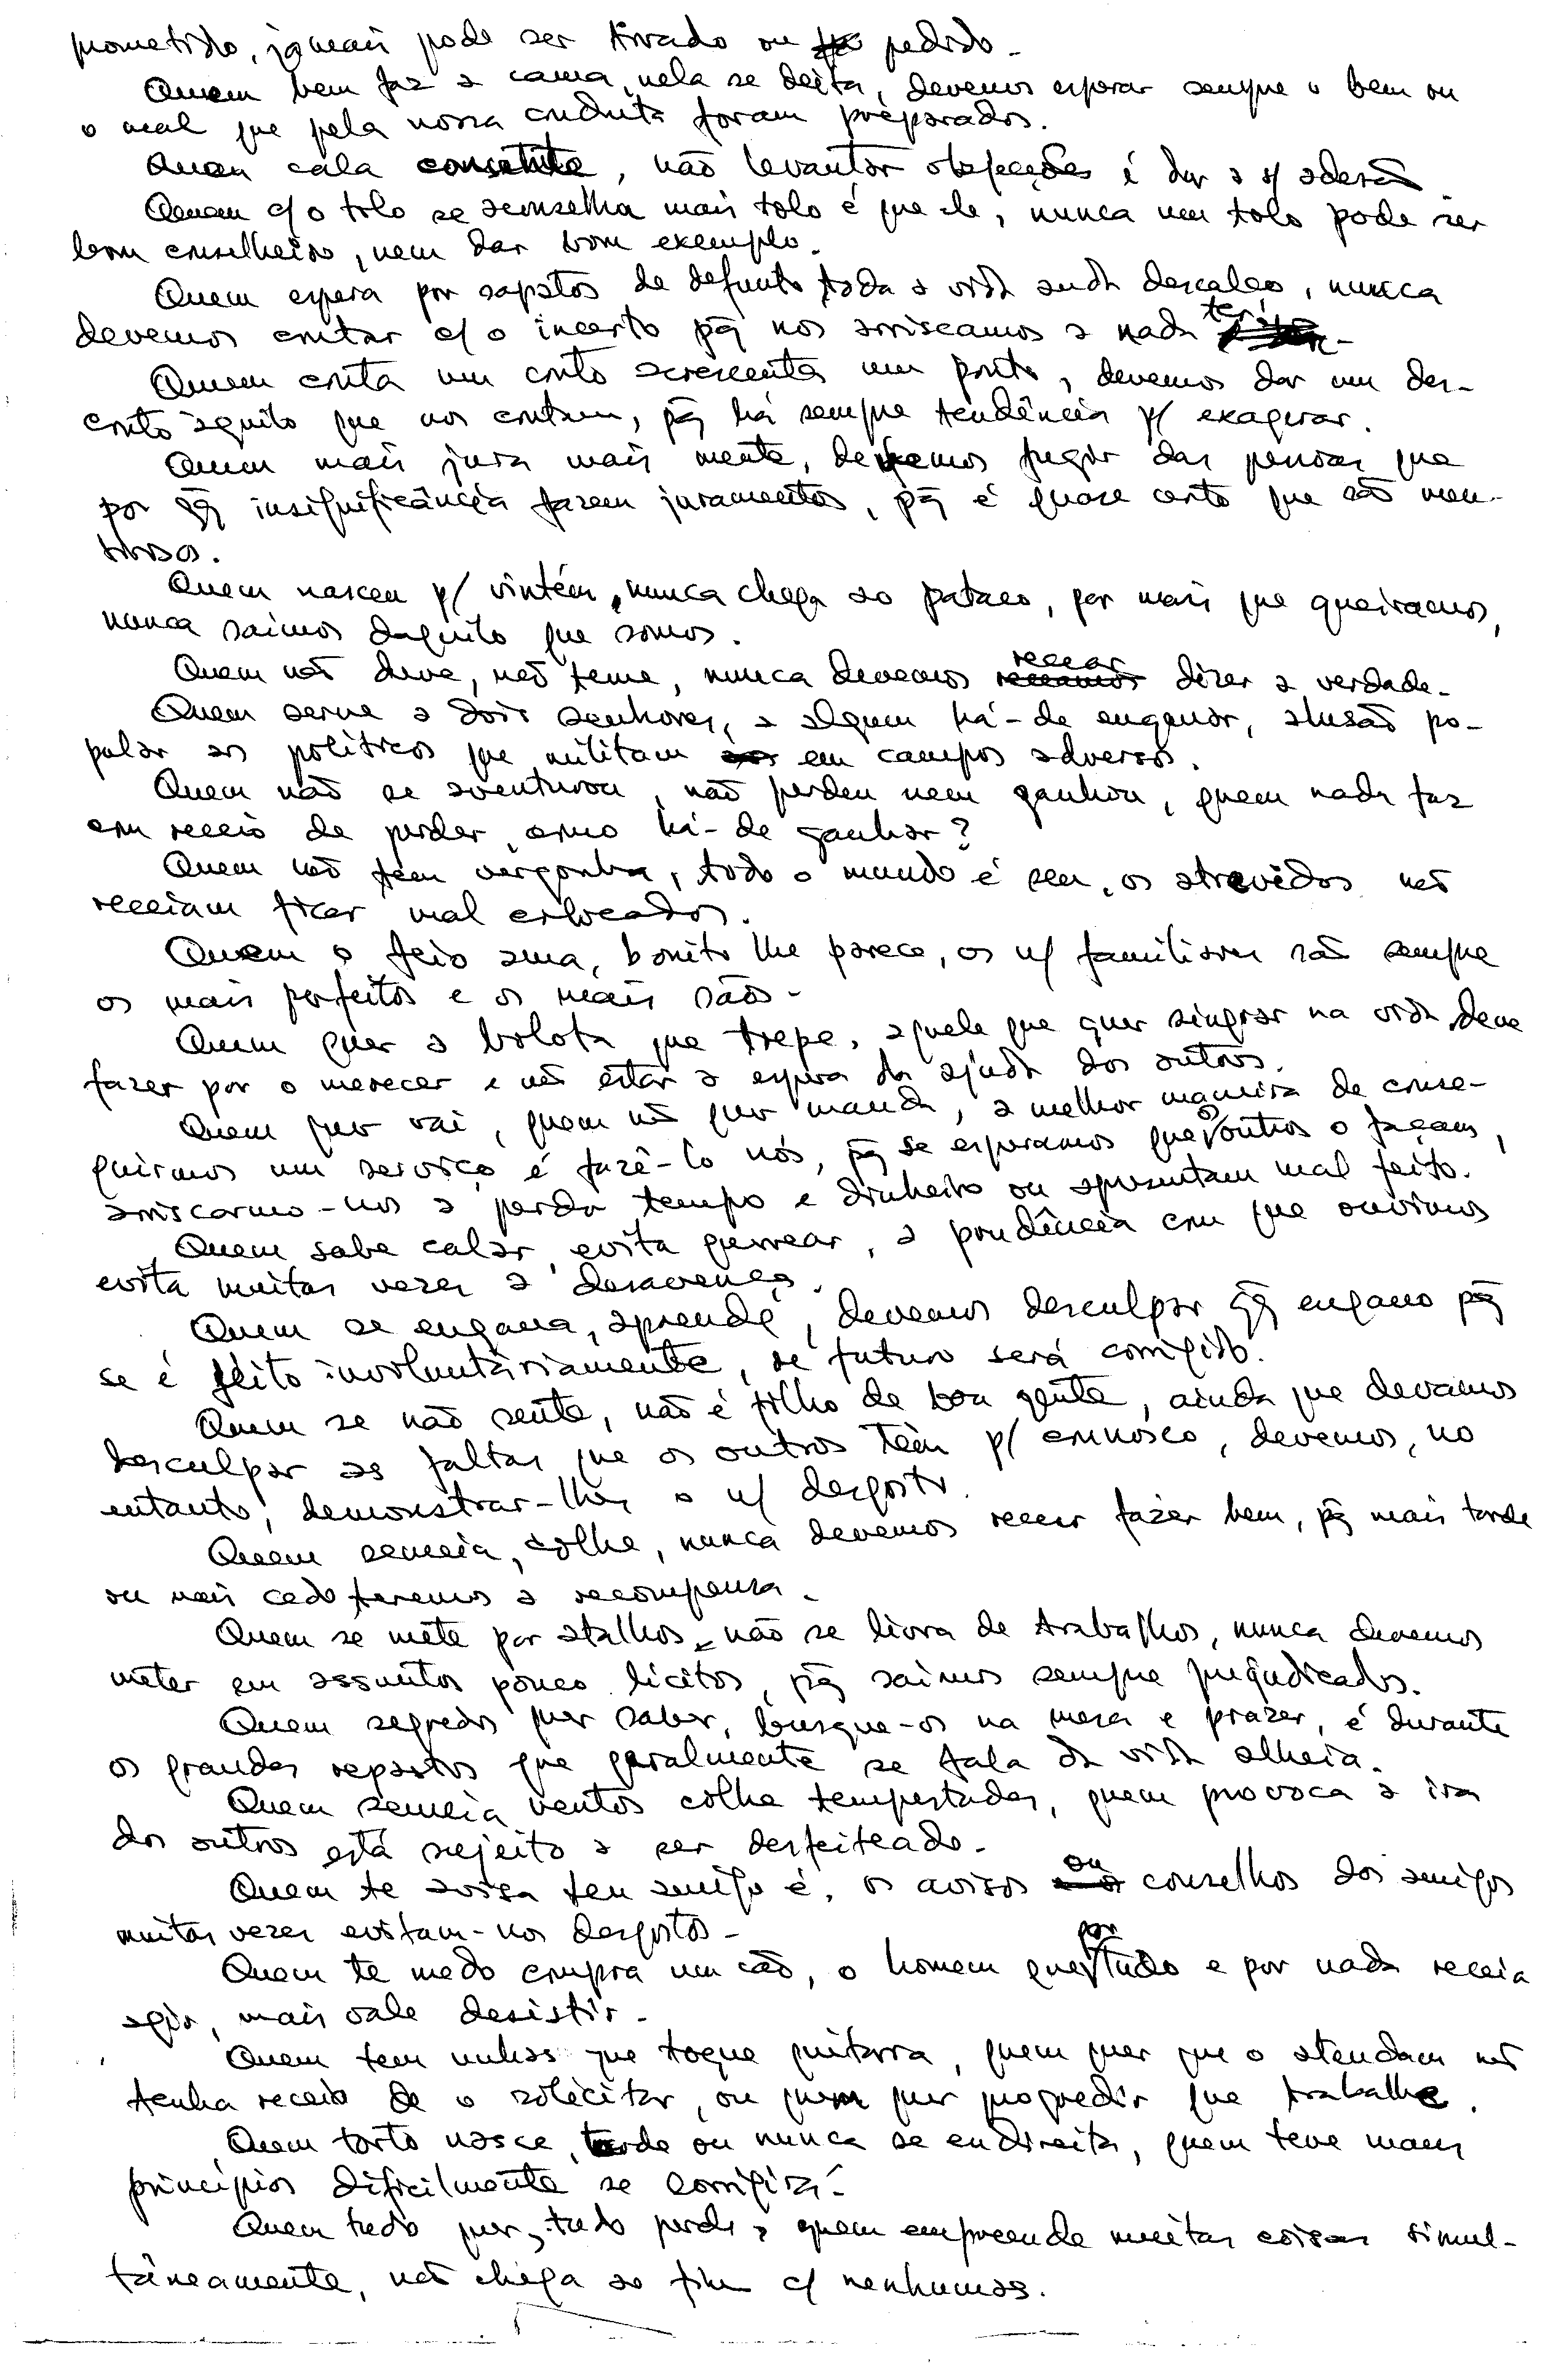 prometido, jamais pode ser tirado ou pedido.
Quem bem faz a cama, nela se deita, devemos esperar sempre o bem ou
o mal que pela nossa conduta foram preparados.
Quem cala consente, não levantar objecções é dar a s/ adesão
Quem c/ o tolo se aconselha mais tolo é que ele, nunca um tolo pode ser
bom conselheiro, nem dar bom exemplo.
Quem espera por sapatos de defunto, toda a vida anda descalço, nunca
devemos contar c/ o incerto pq nos arriscamos a nada ter.
Quem conta um conto acrescenta um ponto, devemos dar um des-
conto àquilo que nos contam, pq há sempre tendência p/ exagerar.
Quem mais jura mais mente, devemos fugir das pessoas que
por qq insignificância fazem juramentos, pq é quase certo que são men-
tirosos.
Quem nasceu p/ vintém, nunca chega ao pataco, por mais que queiramos,
nunca saimos daquilo que somos.
Quem não deve, não teme, nunca devemos recear dizer a verdade.
Quem serve a dois senhores, a algum há-de enganar, alusão po-
pular aos políticos que militam em campos adversos.
Quem não se aventurou, não perdeu nem ganhou, quem nada faz
com receio de perder, como há-de ganhar?
Quem não tem vergonha, todo o mundo é seu, os atrevidos não
receiam ficar mal colocados.
Quem o feio ama, bonito lhe parece, os n/ familiares são sempre
os mais perfeitos e os mais sãos.
Quem quer a bolota que trepe, aquele que quer singrar na vida, deve
fazer por o merecer e não estar à espera da ajuda dos outros.
Quem quer vai, quem não quer manda, a melhor maneira de conse-
guirmos um serviço é fazê-lo nós, pq se esperamos que os outros o façam,
arriscarmo-nos a perder tempo e dinheiro ou apresentam mal feito.
Quem sabe calar, evita guerrear, a prudência com que ouvimos
evita muitas vezes a desavença.
Quem se engana, aprende, devemos desculpar qq engano pq
se é feito involuntàriamente, de futuro será corrigido.
Quem se não sente, não é filho de boa gente, ainda que devamos
desculpar as faltas que os outros têm p/ connosco, devemos, no
entanto, demonstrar-lhes o n/ desgosto.
Quem semeia, colhe, nunca devemos recear fazer bem, pq mais tarde
ou mais cedo teremos a recompensa.
Quem se mete por atalhos, não se livra de trabalhos, nunca devemos
meter em assuntos pouco lícitos, pq saimos sempre prejudicados.
Quem segredos quer saber, busque-os na mesa e prazer, é durante
os grandes repastos que geralmente se fala da vida alheia.
Quem semeia ventos colhe tempestades, quem provoca a ira
dos outros está sujeito a ser desfeiteado.
Quem te avisa teu amigo é, os avisos ou conselhos dos amigos
muitas vezes evitam-nos desgostos.
Quem te medo compra um cão, o homem que por tudo e por nada receia
agir, mais vale desistir.
Quem tem unhas que toque guitarra, quem quer que o atendam não
tenha receio de o solicitar, ou quem quer progredir que trabalhe.
Quem torto nasce, tarde ou nunca se endireita, quem teve maus
princípios dificilmente se corrigirá.
Quem tudo quer, tudo perde, quem empreende muitas coisas simul-
tâneamente, não chega ao fim c/ nenhumas.